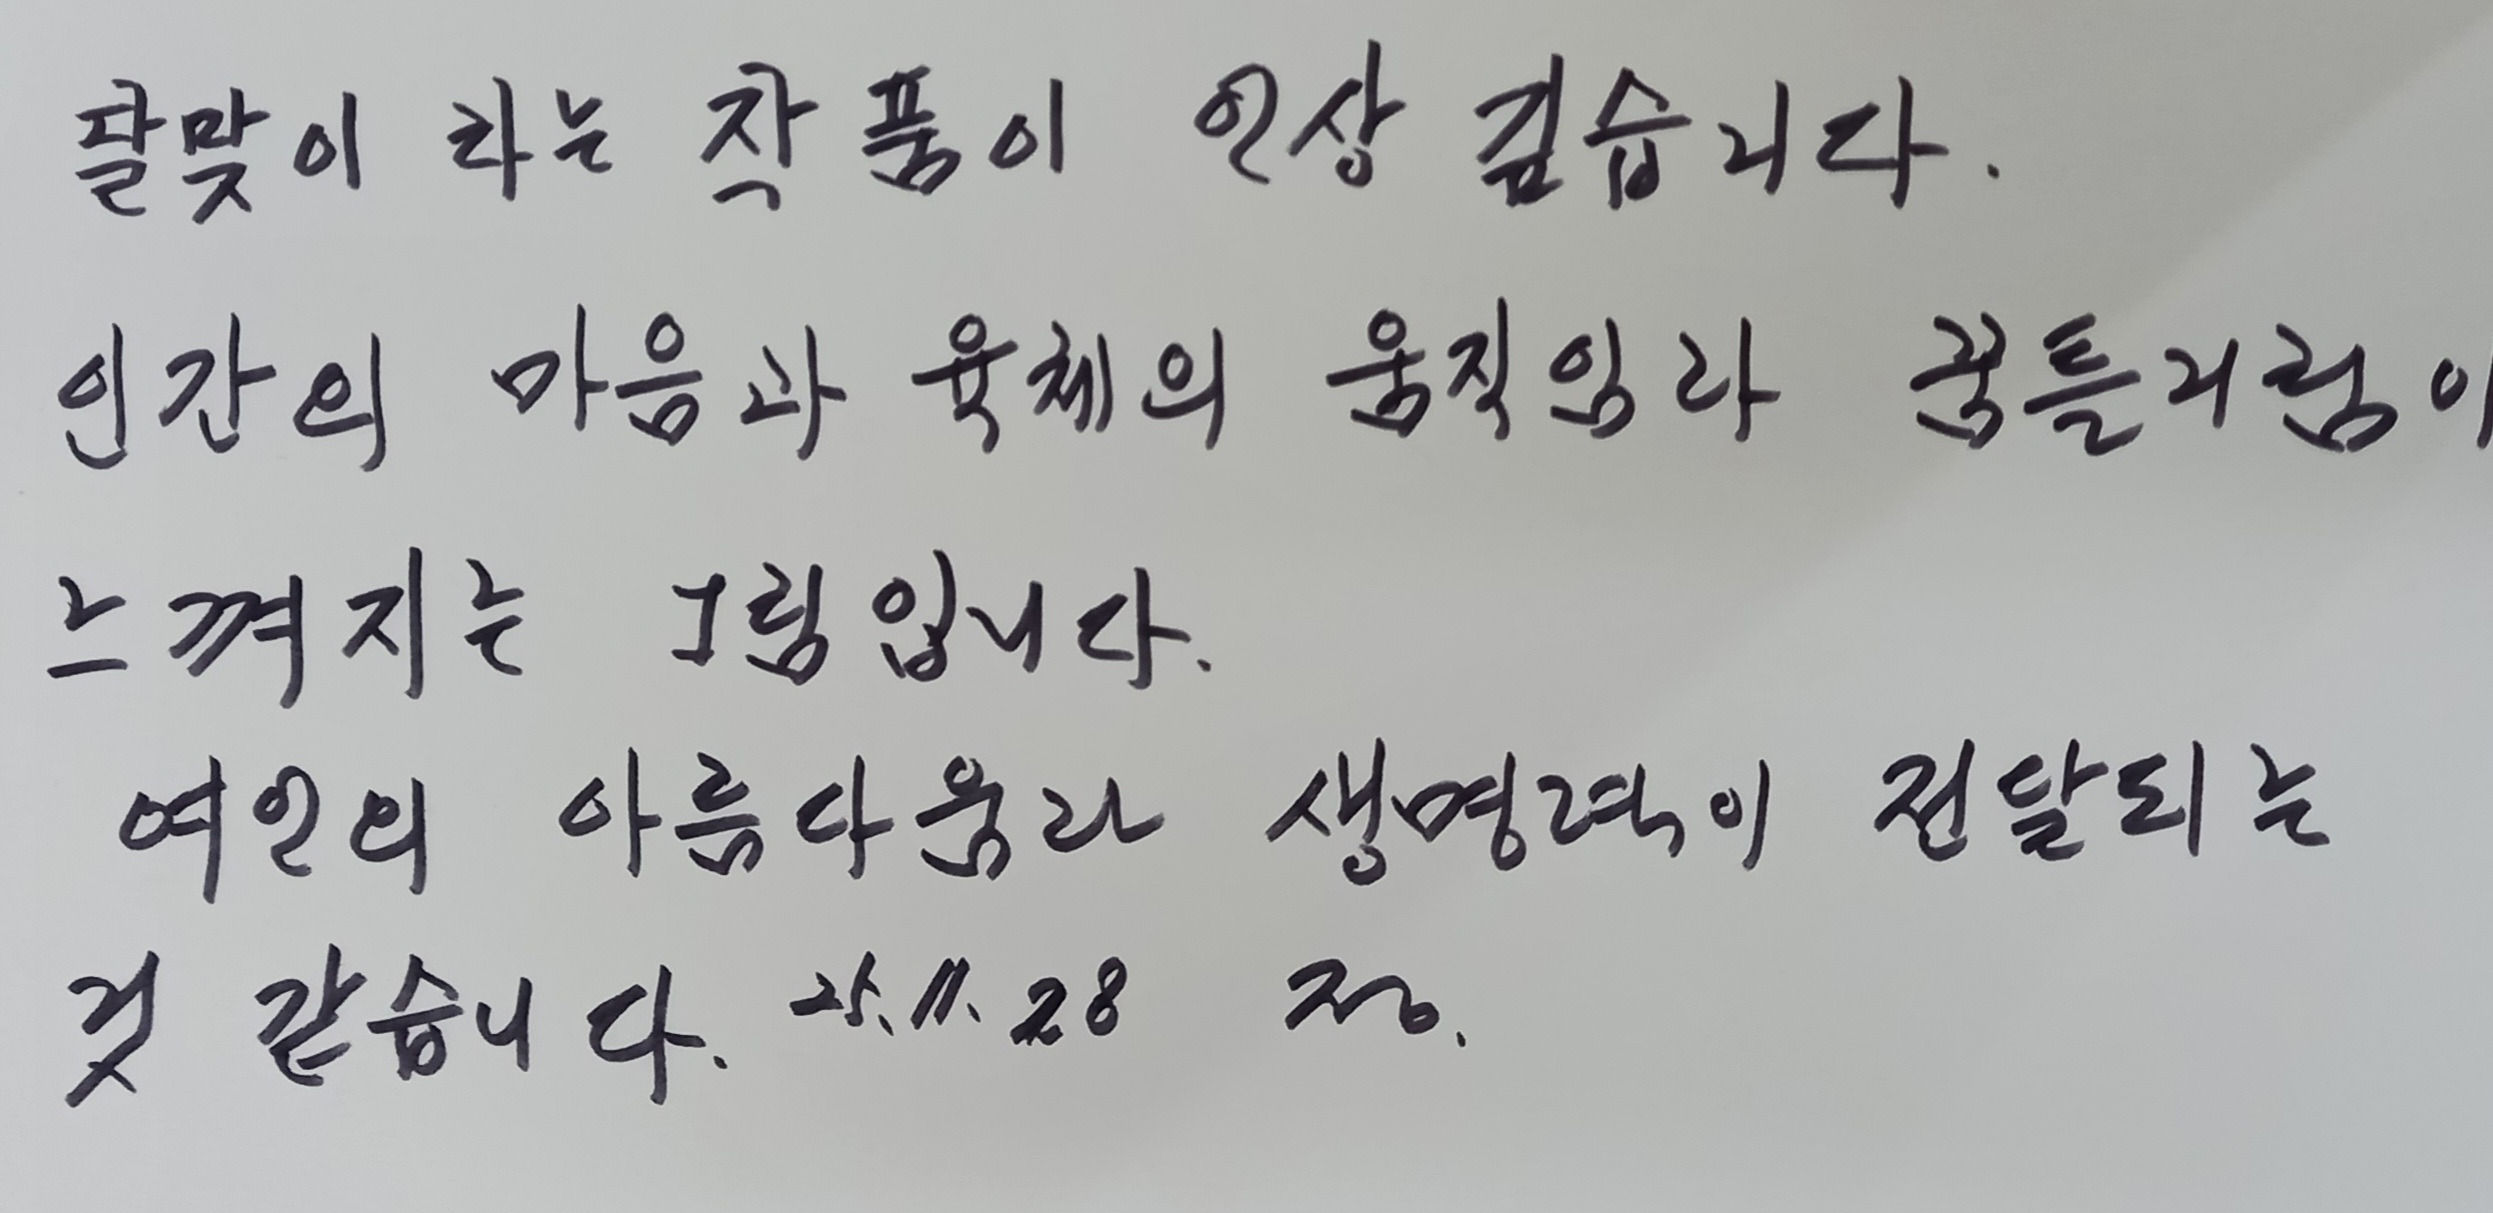 달맞이 라는 작품이 인상 깊습니다.
인간의 마음과 육체의 움직임과 꿈틀거림이
느껴지는 그림입니다.
여인의 아름다움과 생명력이 전달되는
것 같습니다. 25.11.28